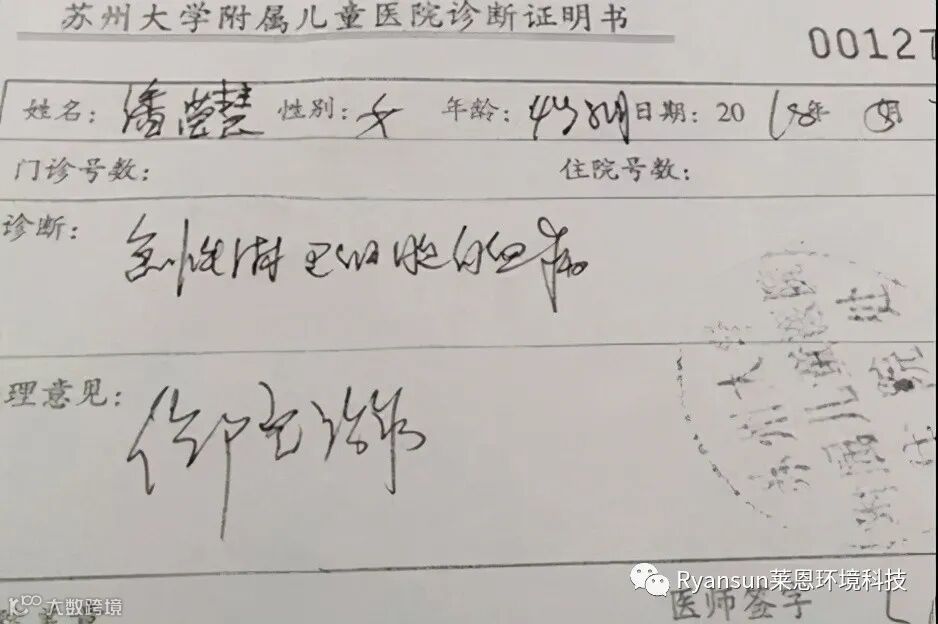 苏州大学附属儿童医院诊断证明书
00127
姓名：潘莹慧 性别：女 年龄：4岁8月 日期：2018年 月
门诊号数： 住院号数：
诊断：急性淋巴细胞白血病
理意见：
住院治疗
Ryansun莱恩环境科技
大数跨境
医师签字